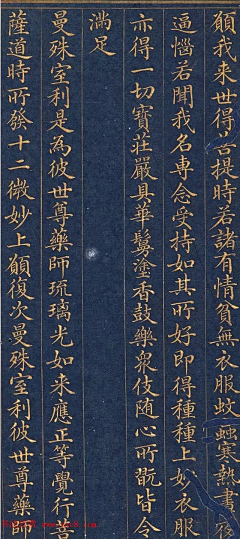 願我來世得菩提時若諸有情貧無衣服蚊蝱寒熱晝夜
逼惱若聞我名專念受持如其所好即得種種上妙衣服
亦得一切寶莊嚴具華鬘塗香鼓樂衆伎随心所翫皆令
滿足
曼殊室利是為彼世尊藥師琉璃光如来應正等覺行菩
薩道時所發十二微妙上願復次曼殊室利彼世尊藥師